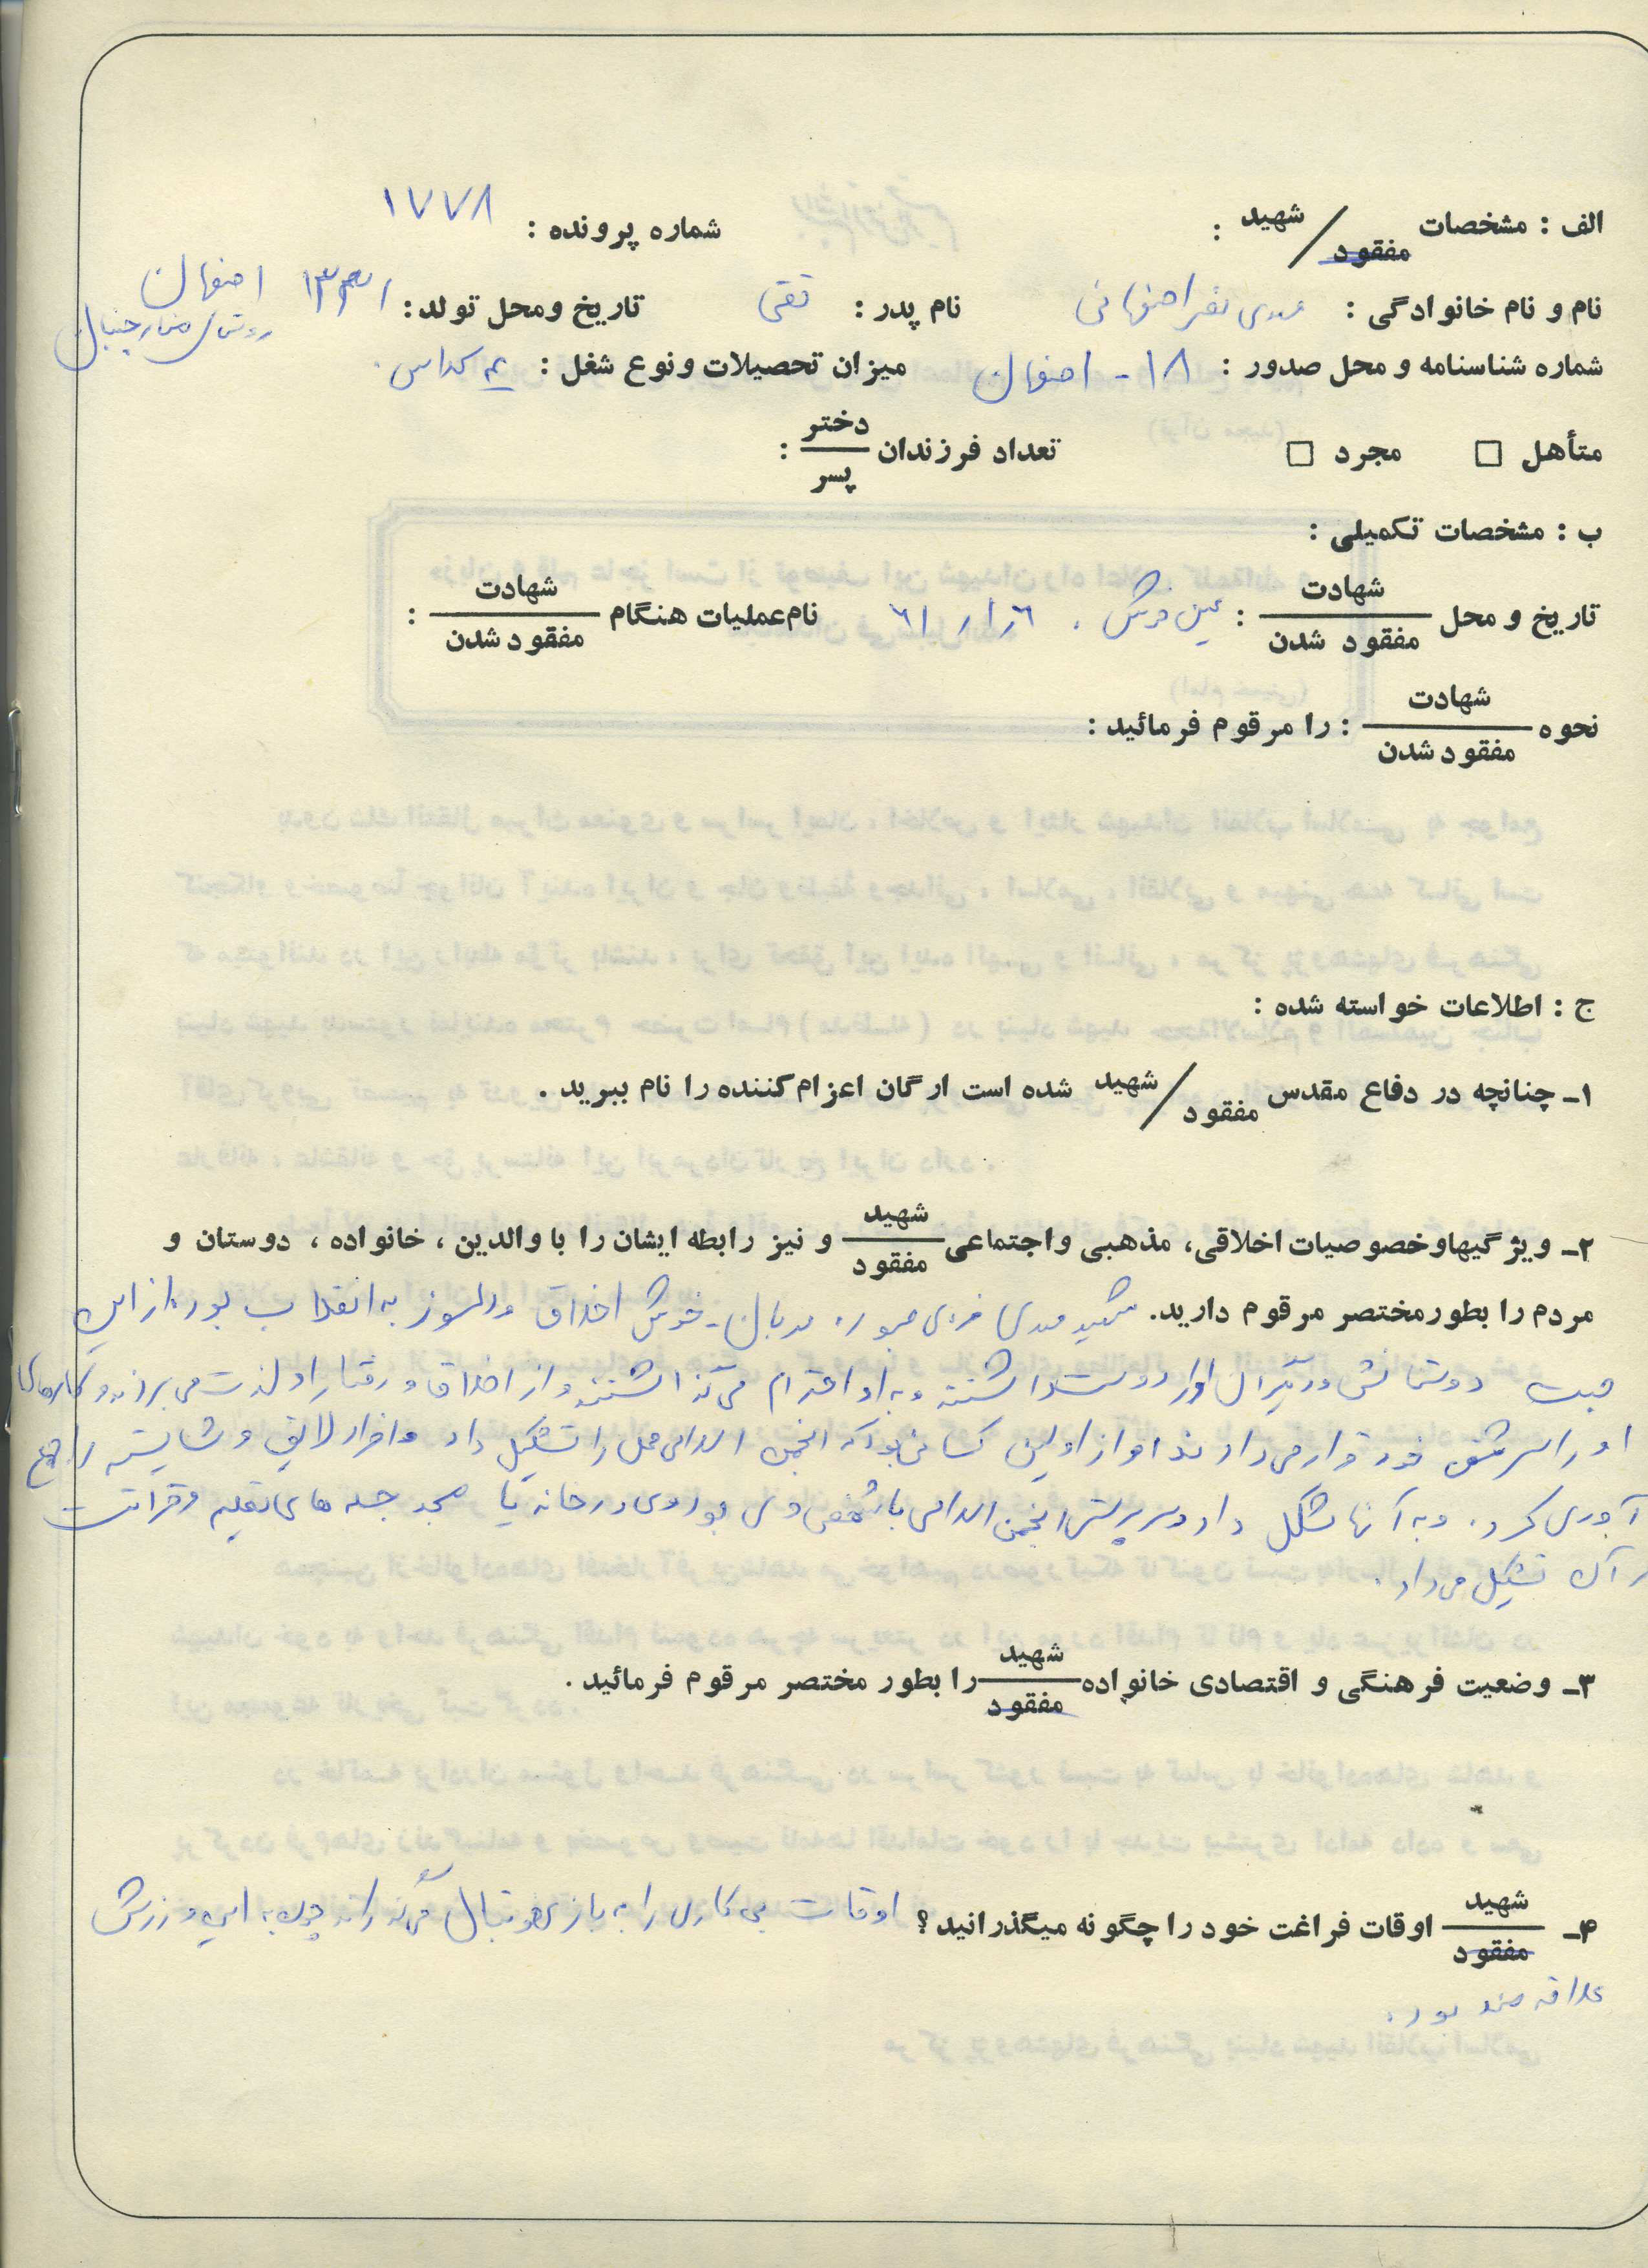 الف : مشخصات شهید / مفقود :
شماره پرونده : ۱۷۷۸
نام و نام خانوادگی : مهدی نصر اصفهانی نام پدر : تقی تاریخ ومحل تولد : ۱۳۳۱ اصفهان
روستای
شماره شناسنامه و محل صدور : ۱۸ - اصفهان میزان تحصیلات ونوع شغل :
متأهل □ مجرد □ تعداد فرزندان دختر / پسر :
ب : مشخصات تکمیلی :
تاریخ و محل شهادت / مفقود شدن : عین خوش . ۶۱/۱/۶ نام عملیات هنگام شهادت / مفقود شدن :
نحوه شهادت / مفقود شدن : را مرقوم فرمائید :
ج : اطلاعات خواسته شده :
۱ـ چنانچه در دفاع مقدس شهید / مفقود شده است ارگان اعزام کننده را نام ببرید .
۲ـ ویژگیهاوخصوصیات اخلاقی، مذهبی واجتماعی شهید / مفقود و نیز رابطه ایشان را با والدین ، خانواده ، دوستان و
مردم را بطورمختصر مرقوم دارید. شهید مهدی فردی صبور، مهربان - خوش اخلاق و دلسوز به انقلاب بود. از این
جهت دوستانش و دیگران او را دوست داشتند و به او احترام می گذاشتند و از اخلاق و رفتار او لذت می بردند و کارهای
او را سرمشق خود قرار می دادند او از اولین کسانی بود که انجمن اسلامی محل را تشکیل داد و افراد لایق و شایسته را جمع
آوری کرد. و به آنها شکل داد و سرپرستی انجمن اسلامی با شخص وی بود وی در خانه یا مسجد جلسه های تعلیم و قرائت
قرآن تشکیل می داد.
۳ـ وضعیت فرهنگی و اقتصادی خانواده شهید / مفقود را بطور مختصر مرقوم فرمائید .
۴ـ شهید / مفقود اوقات فراغت خود را چگونه میگذرانید ؟ اوقات بی کاری را به بازی فوتبال می گذراند چون به این ورزش
علاقه مند بود.